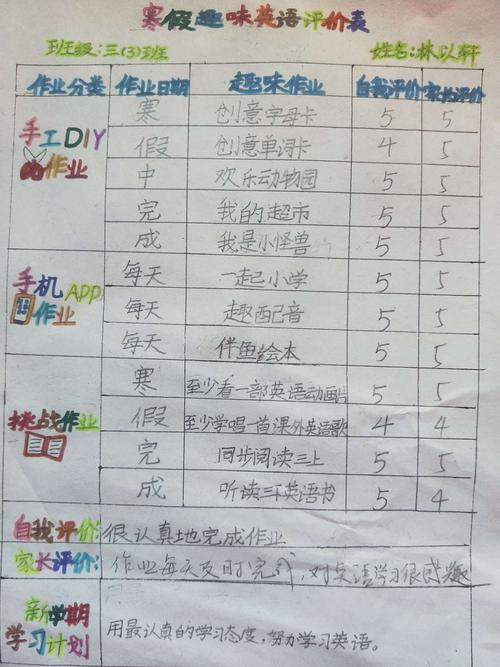 寒假趣味英语评价表
班级:三(3)班 姓名:林以轩
作业分类 作业日期 趣味作业 自我评价 家长评价
手工DIY作业
寒 创意字母卡 5 5
假 创意单词卡 4 5
中 欢乐动物园 5 5
完 我的超市 5 5
成 我是小怪兽 5 5
手机APP作业
每天 一起小学 5 5
每天 趣配音 5 5
每天 伴鱼绘本 5 5
挑战作业
寒 至少看一部英语动画片 5 5
假 至少学唱一首课外英语歌 4 4
完 同步阅读三上 5 5
成 听读三下英语书 5 4
自我评价: 很认真地完成作业
家长评价: 作业每天及时完成,对英语学习很感兴趣
新学期
学习计划 用最认真的学习态度,努力学习英语。